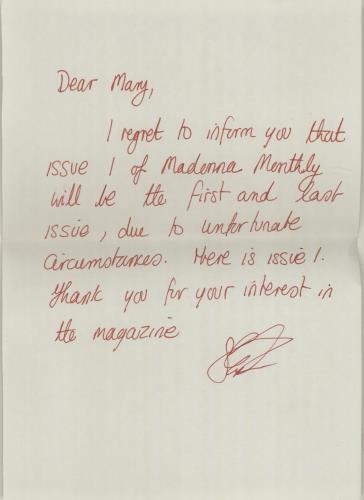 Dear Mary,
I regret to inform you that
issue 1 of Madonna Monthly
will be the first and last
issue, due to unfortunate
circumstances. Here is issue 1.
Thank you for your interest in
the magazine